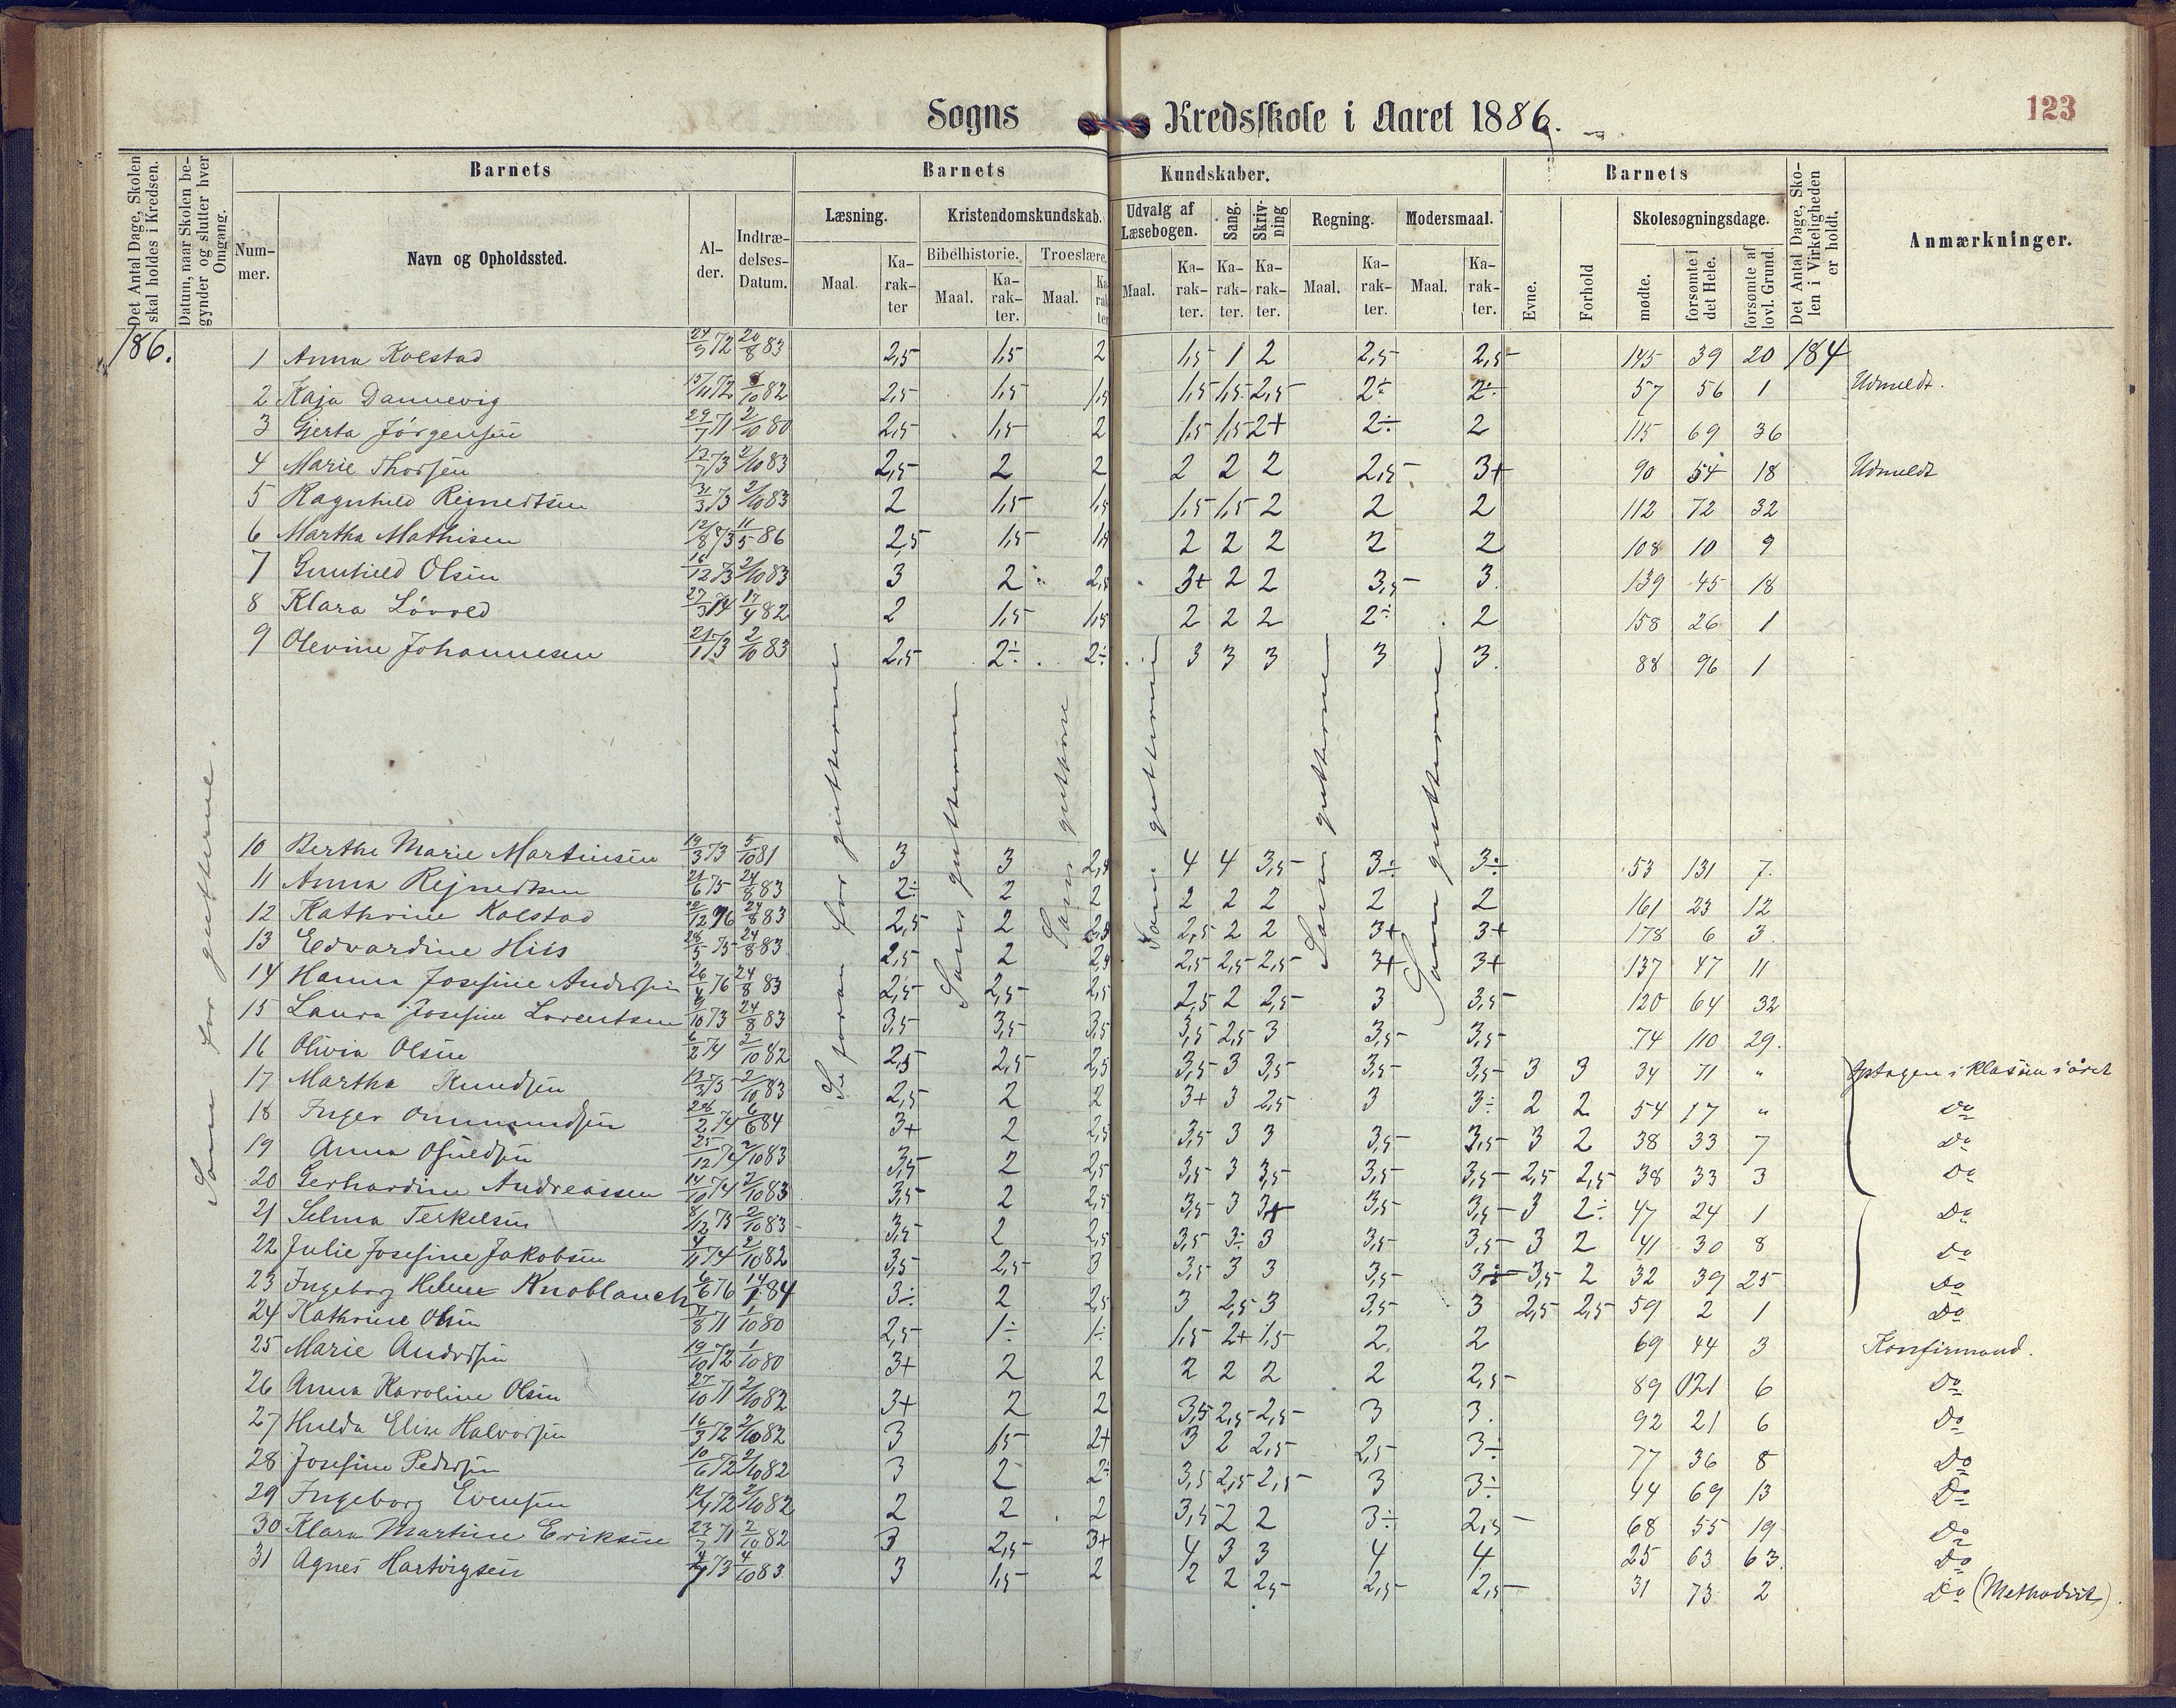 Sogns Kredsskole i Aaret 1886.
123
Det Antal Dage, Skolen skal holdes i Kredsen.
Datum, naar Skolen begynder og slutter hver Omgang.
Barnets
Nummer.
Navn og Opholdssted.
Alder.
Indtrædelses-Datum.
Barnets Kundskaber.
Læsning.
Maal.
Karakter
Kristendomskundskab.
Bibelhistorie.
Maal.
Karakter.
Troeslære.
Maal.
Karakter
Udvalg af Læsebogen.
Maal.
Karakter.
Sang.
Karakter.
Skrivning
Karakter.
Regning.
Maal.
Karakter.
Modersmaal.
Maal.
Karakter.
Barnets
Evne.
Forhold
Skolesøgningsdage.
mødte.
forsømte i det Hele.
forsømte af lovl. Grund.
Det Antal Dage, Skolen i Virkeligheden er holdt.
Anmærkninger.
186.
Som for gutterne.
Se foran for gutterne
Som gutterne
Som gutterne
Som gutterne
Som gutterne
Som gutterne
1 Anna Kolstad 24/9 72 20/8 83 2,5 1,5 2 1,5 1 2 2,5 2,5 145 39 20 184
2 Kaja Dannevig 15/11 72 /10 82 2,5 1,5 1,5 1,5 1,5 2,5 2÷ 2÷ 57 56 1 Udmeldt.
3 Gjerta Jørgensen 29/7 71 2/10 80 2,5 1,5 2 1,5 1,5 2+ 2÷ 2 115 69 36
4 Marie Thorsen 17/7 73 2/10 83 2,5 2 2 2 2 2 2,5 3+ 90 54 18 Udmeldt
5 Ragnhild Reinertsen 31/3 73 2/10 83 2 1,5 1,5 1,5 1,5 2 2 2 112 72 32
6 Martha Mathisen 12/8 73 11/5 86 2,5 1,5 1,5 2 2 2 2 2 108 10 9
7 Gunhild Olsen 16/12 73 2/10 83 3 2 2,5 3+ 2 2 3,5 3. 139 45 18
8 Klara Løvold 27/3 74 17/4 82 2 1,5 1,5 2 2 2 2÷ 2 158 26 1
9 Olevine Johannesen 21/1 73 2/10 83 2,5 2÷ 2÷ 3 3 3 3 3. 88 96 1
10 Berthe Marie Martinsen 19/3 73 5/10 81 3 3 2,5 4 4 3,5 3÷ 3÷ 53 131 7.
11 Anna Rejnertsen 21/6 75 24/8 83 2÷ 2 2 2 2 2 2 2 161 23 12
12 Kathrine Kolstad /12 76 24/8 83 2,5 2 2,5 2,5 2 2 3+ 3+ 178 6 3.
13 Edvardine Hiis 28/5 75 24/8 83 2,5 2 2,5 2,5 2,5 2,5 3+ 3+ 137 47 11
14 Hanna Josefine Andersen 26/4 76 24/8 83 2,5 2,5 2,5 2,5 2 2,5 3 3,5 120 64 32
15 Laura Josefine Lorentsen 9/10 73 24/8 83 3,5 3,5 3,5 3,5 2,5 3 3,5 3,5 74 110 29.
16 Olivia Olsen 6/2 74 2/10 82 2,5 2,5 2,5 3,5 3 3,5 3,5 3,5 3 3 34 71 " Optagen i klassen i året
17 Martha Knudsen 13/3 73 2/10 83 2,5 2 2 3+ 3 2,5 3 3÷ 2 2 54 17 " Do
18 Inger Ommundsen 28/2 74 6/6 84 3+ 2 2,5 3,5 3 3 3,5 3,5 3 2 38 33 7 Do
19 Anna Osuldsen 25/12 74 2/10 83 3,5 2 2,5 3,5 3 3,5 3,5 3,5 2,5 2,5 38 33 3 Do
20 Gerhardine Andreassen 14/10 74 2/10 83 3,5 2 2,5 3,5 3 3+ 3,5 3,5 3 2÷ 47 24 1 Do
21 Selma Terkelsen 8/12 73 2/10 83 3,5 2 2,5 3,5 3÷ 3 3,5 3,5 3 2 41 30 8 Do
22 Julie Josefine Jakobsen 4/11 74 2/10 82 3,5 2,5 3 3,5 3 3 3,5 3÷ 3,5 2 32 39 25 Do
23 Ingeborg Helene Knoblauch 6/6 76 14/1 84 3÷ 2 2,5 3 2,5 3 3,5 3 2,5 2,5 59 2 1 Do
24 Kathrine Olsen /8 71 1/10 80 2,5 1÷ 1÷ 1,5 2+ 1,5 2. 2 69 44 3 Konfirmand.
25 Marie Andersen 19/10 72 1/10 80 3+ 2 2 2 2 2 2 2,5 89 021 6 Do
26 Anna Karoline Olsen 27/10 71 2/10 82 3+ 2 2 3,5 2,5 2,5 3 3. 92 21 6 Do
27 Hulda Elise Halvorsen 16/3 72 2/10 82 3 1,5 2+ 3 2 2,5 2,5 3÷ 77 36 8 Do
28 Josefine Pedersen 10/6 72 2/10 82 3 2 2÷ 3,5 2,5 2,5 3 3÷ 44 69 13 Do
29 Ingeborg Evensen 12/4 72 2/10 82 2 2 2 3,5 2 2 3÷ 2,5 68 55 19 Do
30 Klara Martine Eriksen 23/7 71 2/10 82 3 2,5 3+ 4 3 3 4 4 25 63 63. Do
31 Agnes Hartvigsen /7 73 4/10 83 3 1,5 2 2 2 2,5 2,5 2,5 31 73 2 Do (Methodist).